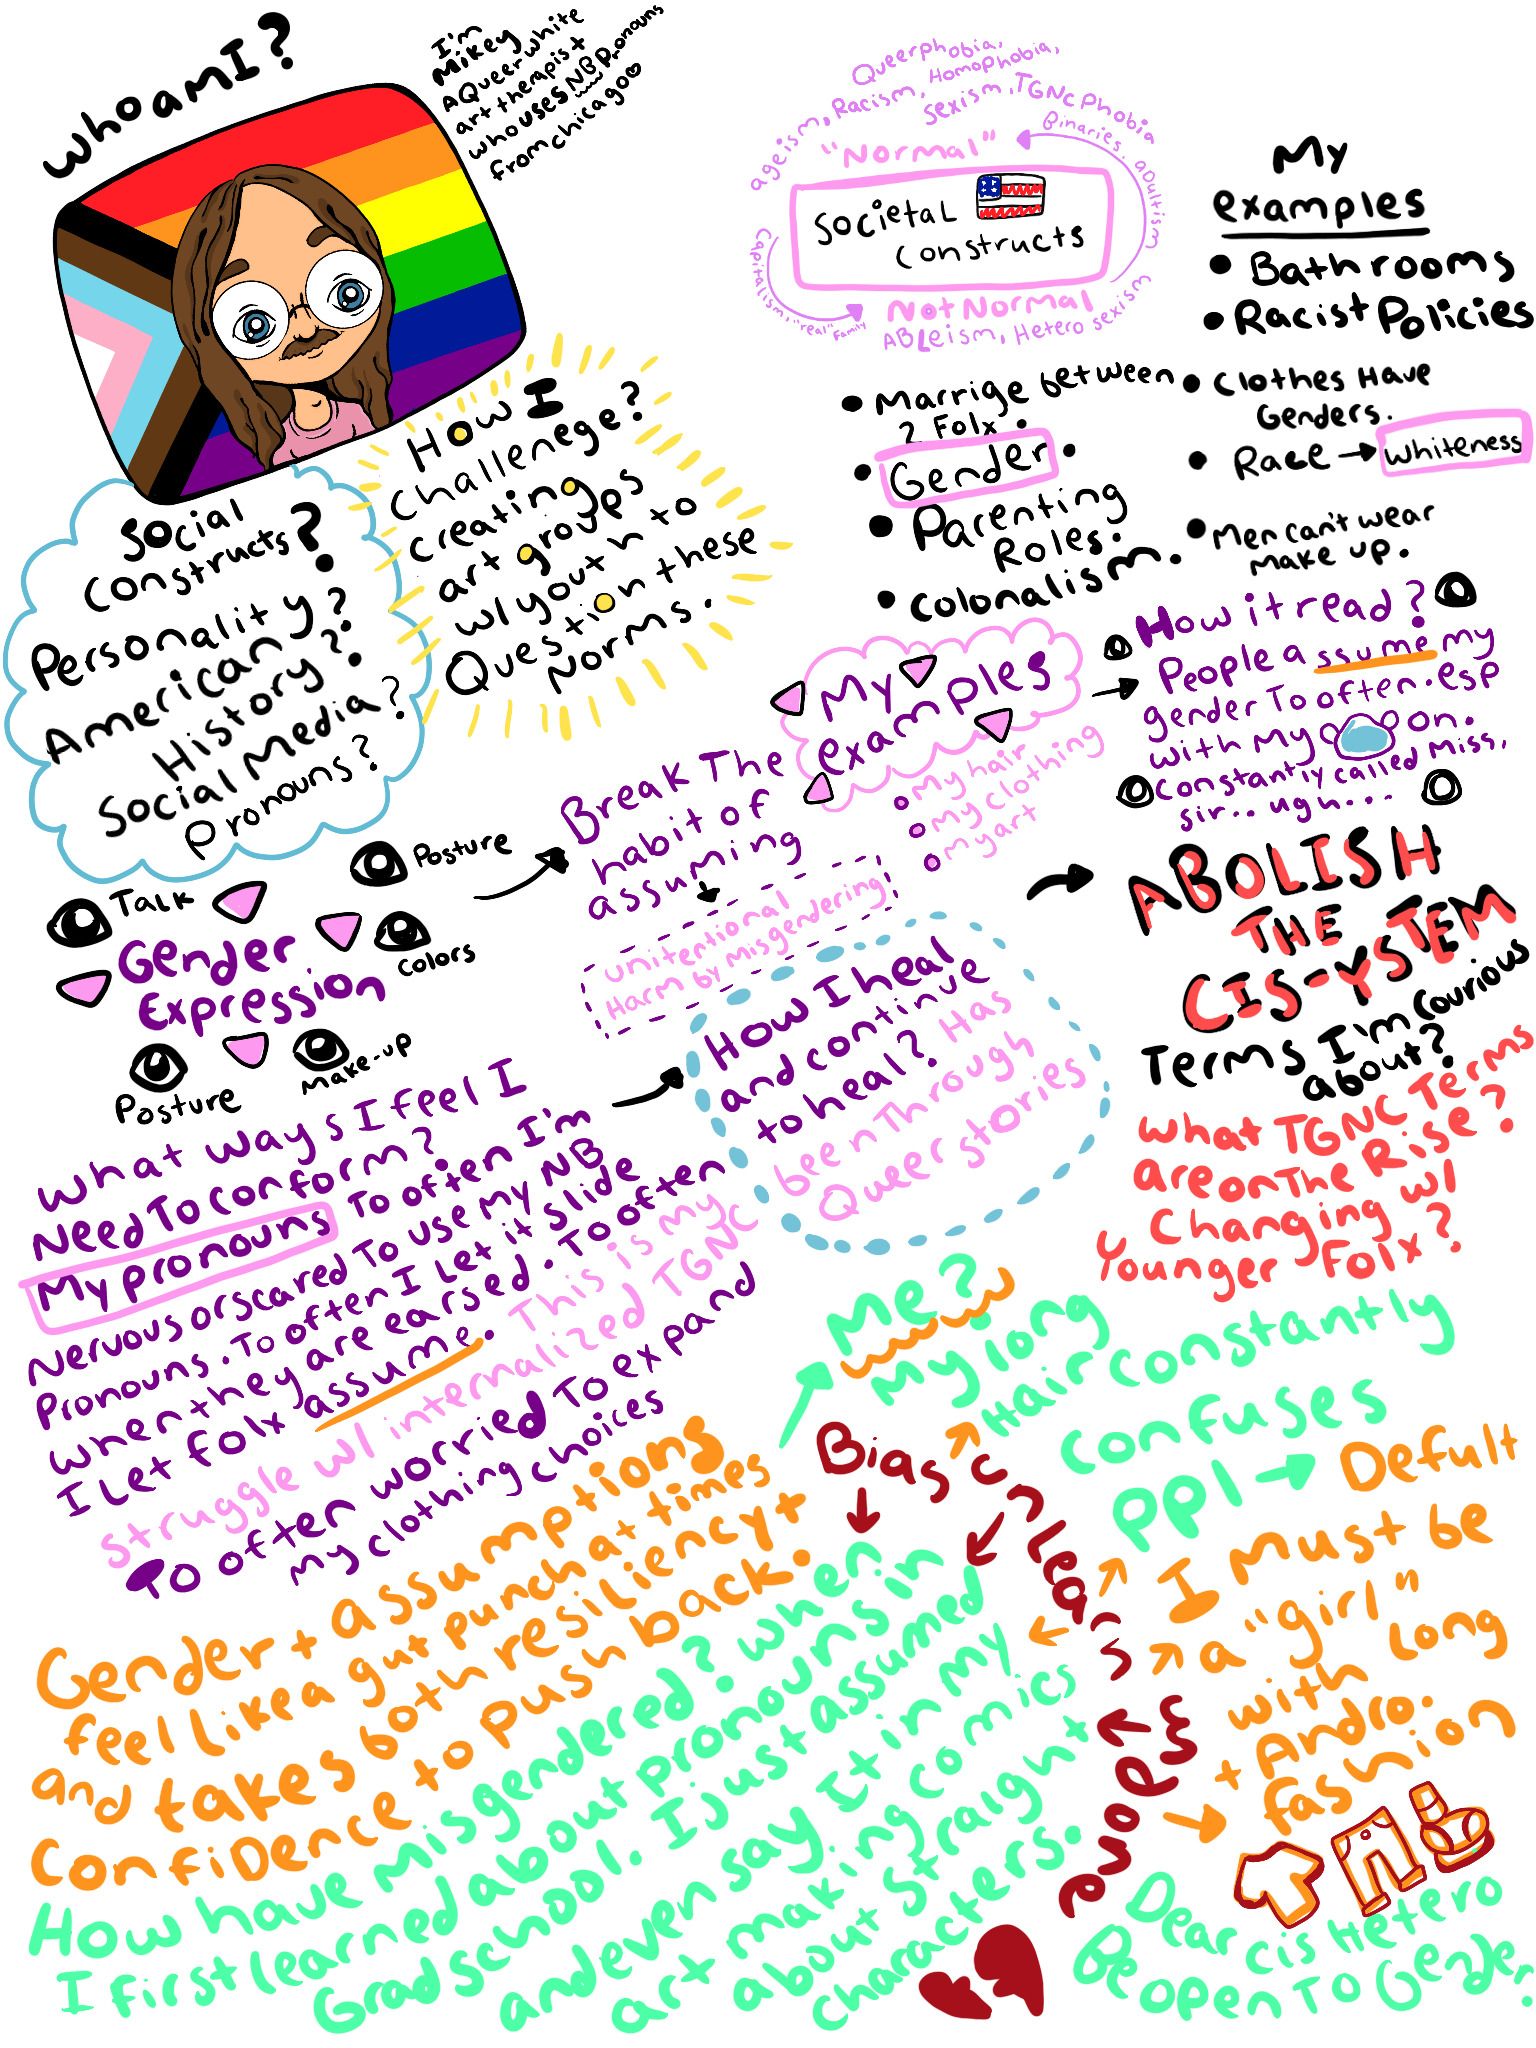 whoamI?
I'm
Mikey
A Queer white
art therapist
who uses NB Pronouns
from chicago
Queerphobia,
Homophobia,
ageism, Racism,
sexism, TGNC Phobia
Binaries. aDultism
"Normal"
Societal
constructs
Capitalism, "real" Family
NotNormal
ABLeism, Hetero sexism
My
examples
Bathrooms
Racist Policies
Clothes Have
Genders.
Race → whiteness
Men can't wear
make up.
Marrige between
2 Folx.
Gender.
Parenting
Roles.
colonalism.
How I
challenege?
creating
art groups
w/ youth to
Question these
Norms.
Social
constructs?
Personality?
American?
History?
Social Media?
Pronouns?
My
examples
my hair
my clothing
my art
How it read?
People assume my
gender To often. esp
with my on.
Constantly called Miss,
sir.. ugh...
Break The
habit of
assuming
unitentional
Harm by misgendering
Posture
Talk
Gender
Expression
colors
Make-up
Posture
ABOLISH
THE
CIS-YSTEM
Terms I'm Courious
about?
What TGNC Terms
are on The Rise?
& Changing w/
Younger Folx?
How I heal
and continue
to heal? Has
been Through
Queer stories
What ways I feel I
Need To conform?
My pronouns To often I'm
nervous or scared To use my NB
Pronouns. To often I Let it slide
when they are earsed. To often
I Let folx assume. This is my
struggle w/ internalized TGNC
To often worried To expand
my clothing choices
Me?
My long
Hair constantly
confuses
PPl → Defult
I Must be
a "girl"
with long
+ Andro.
fashion
Bias unlearns
me
Gender + assumptions
feel like a gut punch at times
and takes both resiliency +
confiDence to push back.
How have misgendered? when
I first learned about pronouns in
Grad school. I just assumed
and even say It in my
art making comics
about straight
characters.
Dear cis Hetero
Be open To Gender.